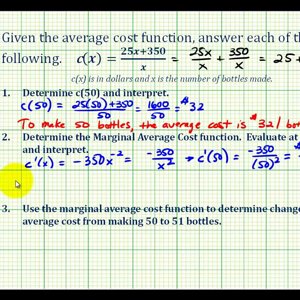 Given the average cost function, answer each of th
following. c(x) = 25x+350/x = 25x/x + 350/x = 25 +
c(x) is in dollars and x is the number of bottles made.
1. Determine c(50) and interpret.
c(50) = 25(50)+350/50 = 1600/50 = $32
To make 50 bottles, the average cost is $32/bot
2. Determine the Marginal Average Cost function. Evaluate at
and interpret.
c'(x) = -350x^-2 = -350/x² → c'(50) = -350/(50)² =
3. Use the marginal average cost function to determine change
average cost from making 50 to 51 bottles.